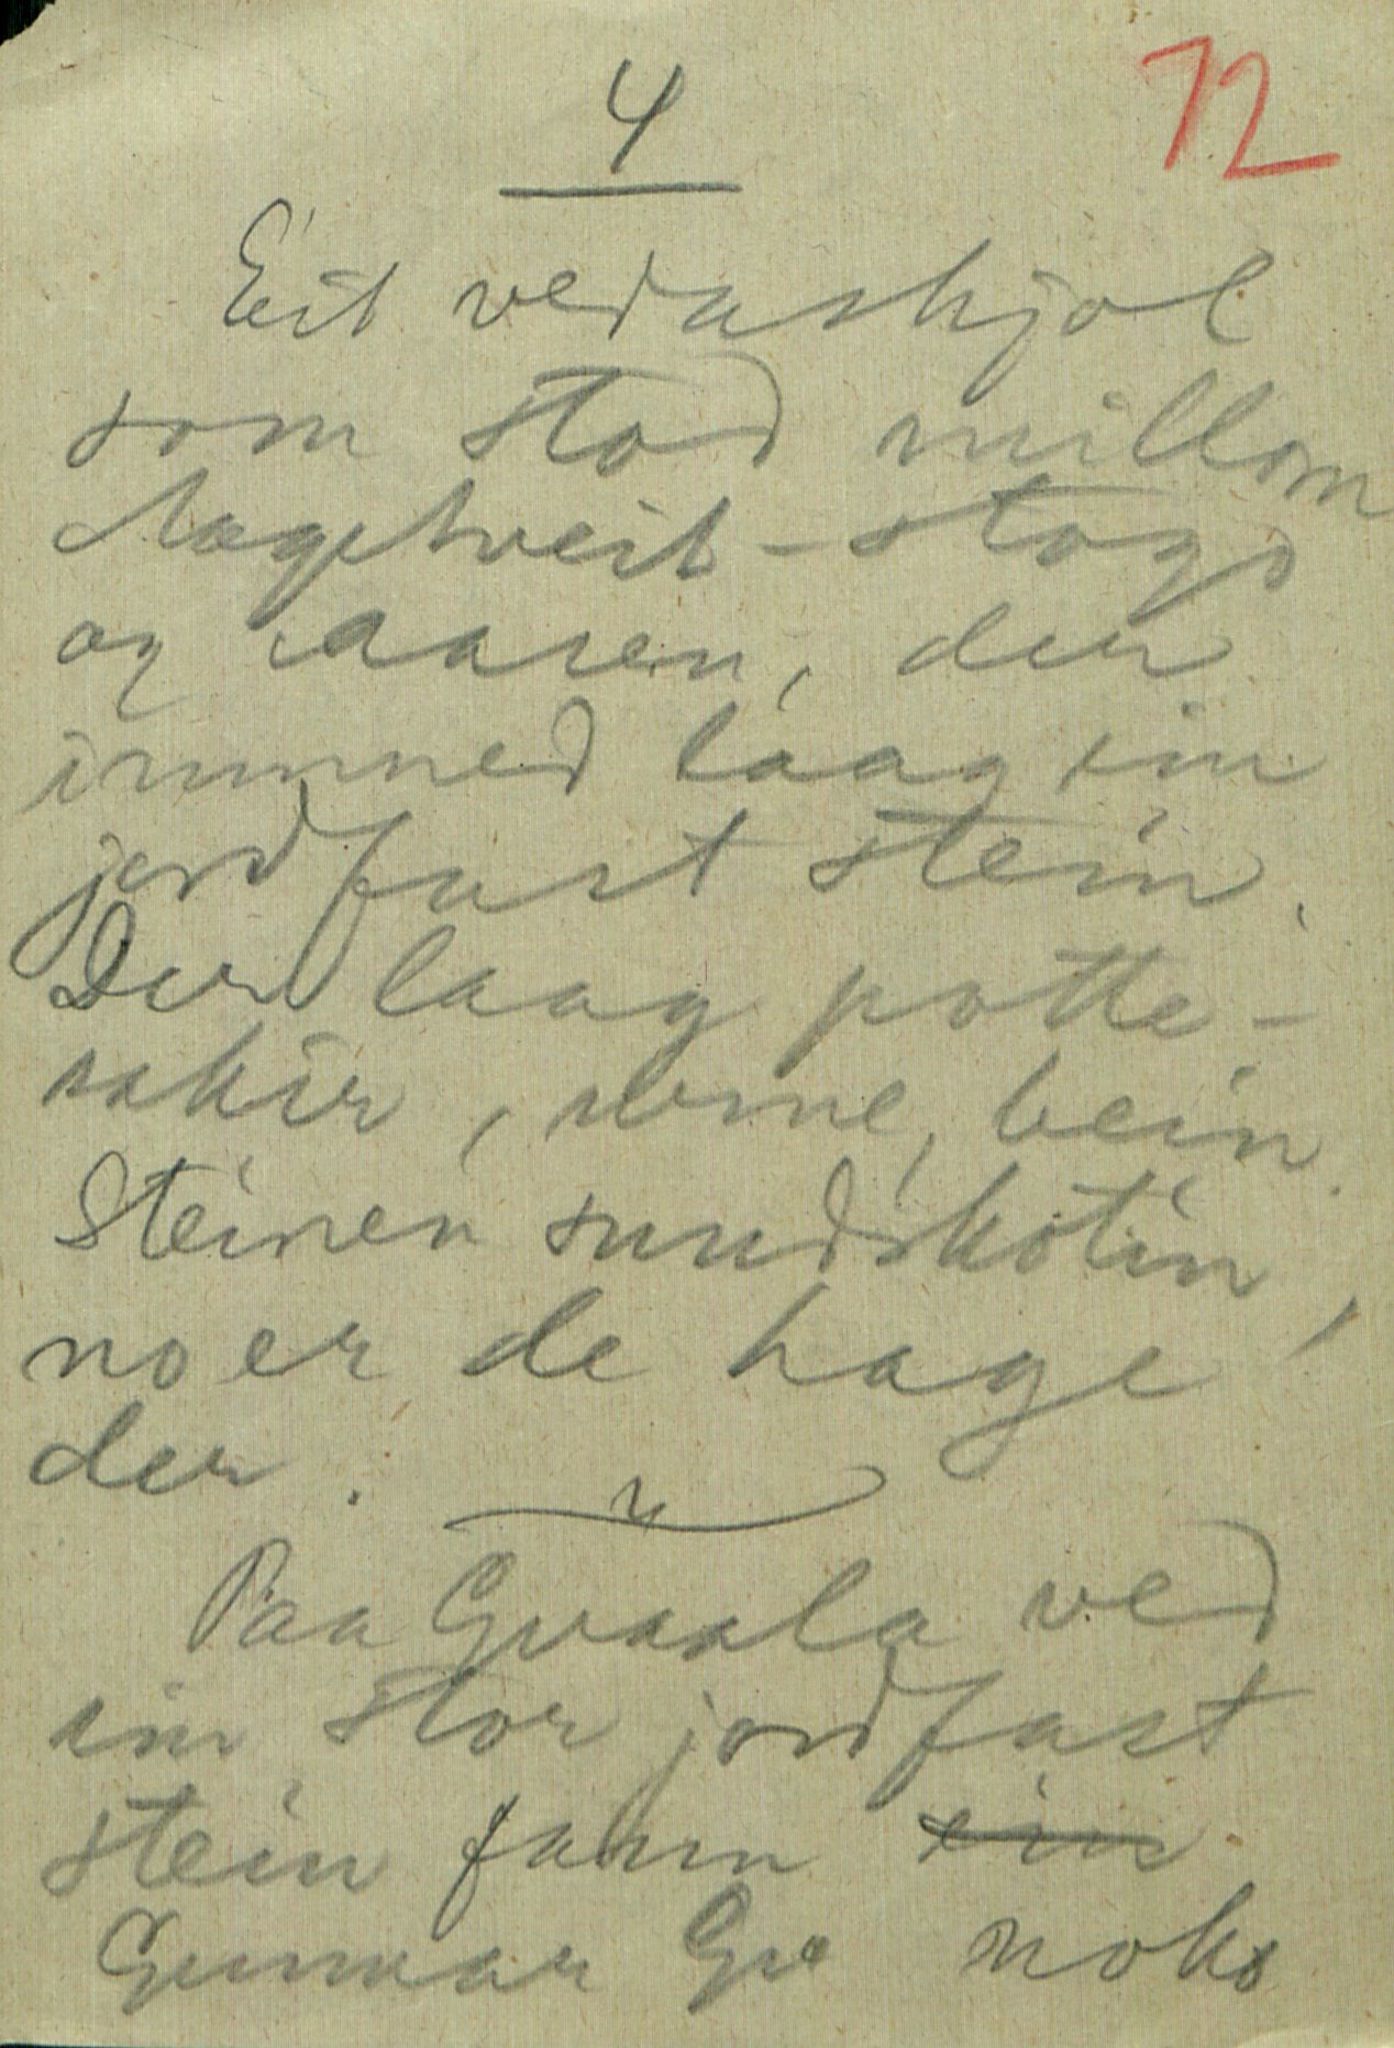 4
72
Eit vedaskjol
som stod millom
Nagetveit-stogo
og aaren, der
innmed laag ein
jordfast stein.
Der laag potte-
sakir, orme, bein.
Steinen sundskotin,
no er de hage
der.
Paa Gvaala ved
ein stor jordfast
stein fann ein
Gunnar Gv noko